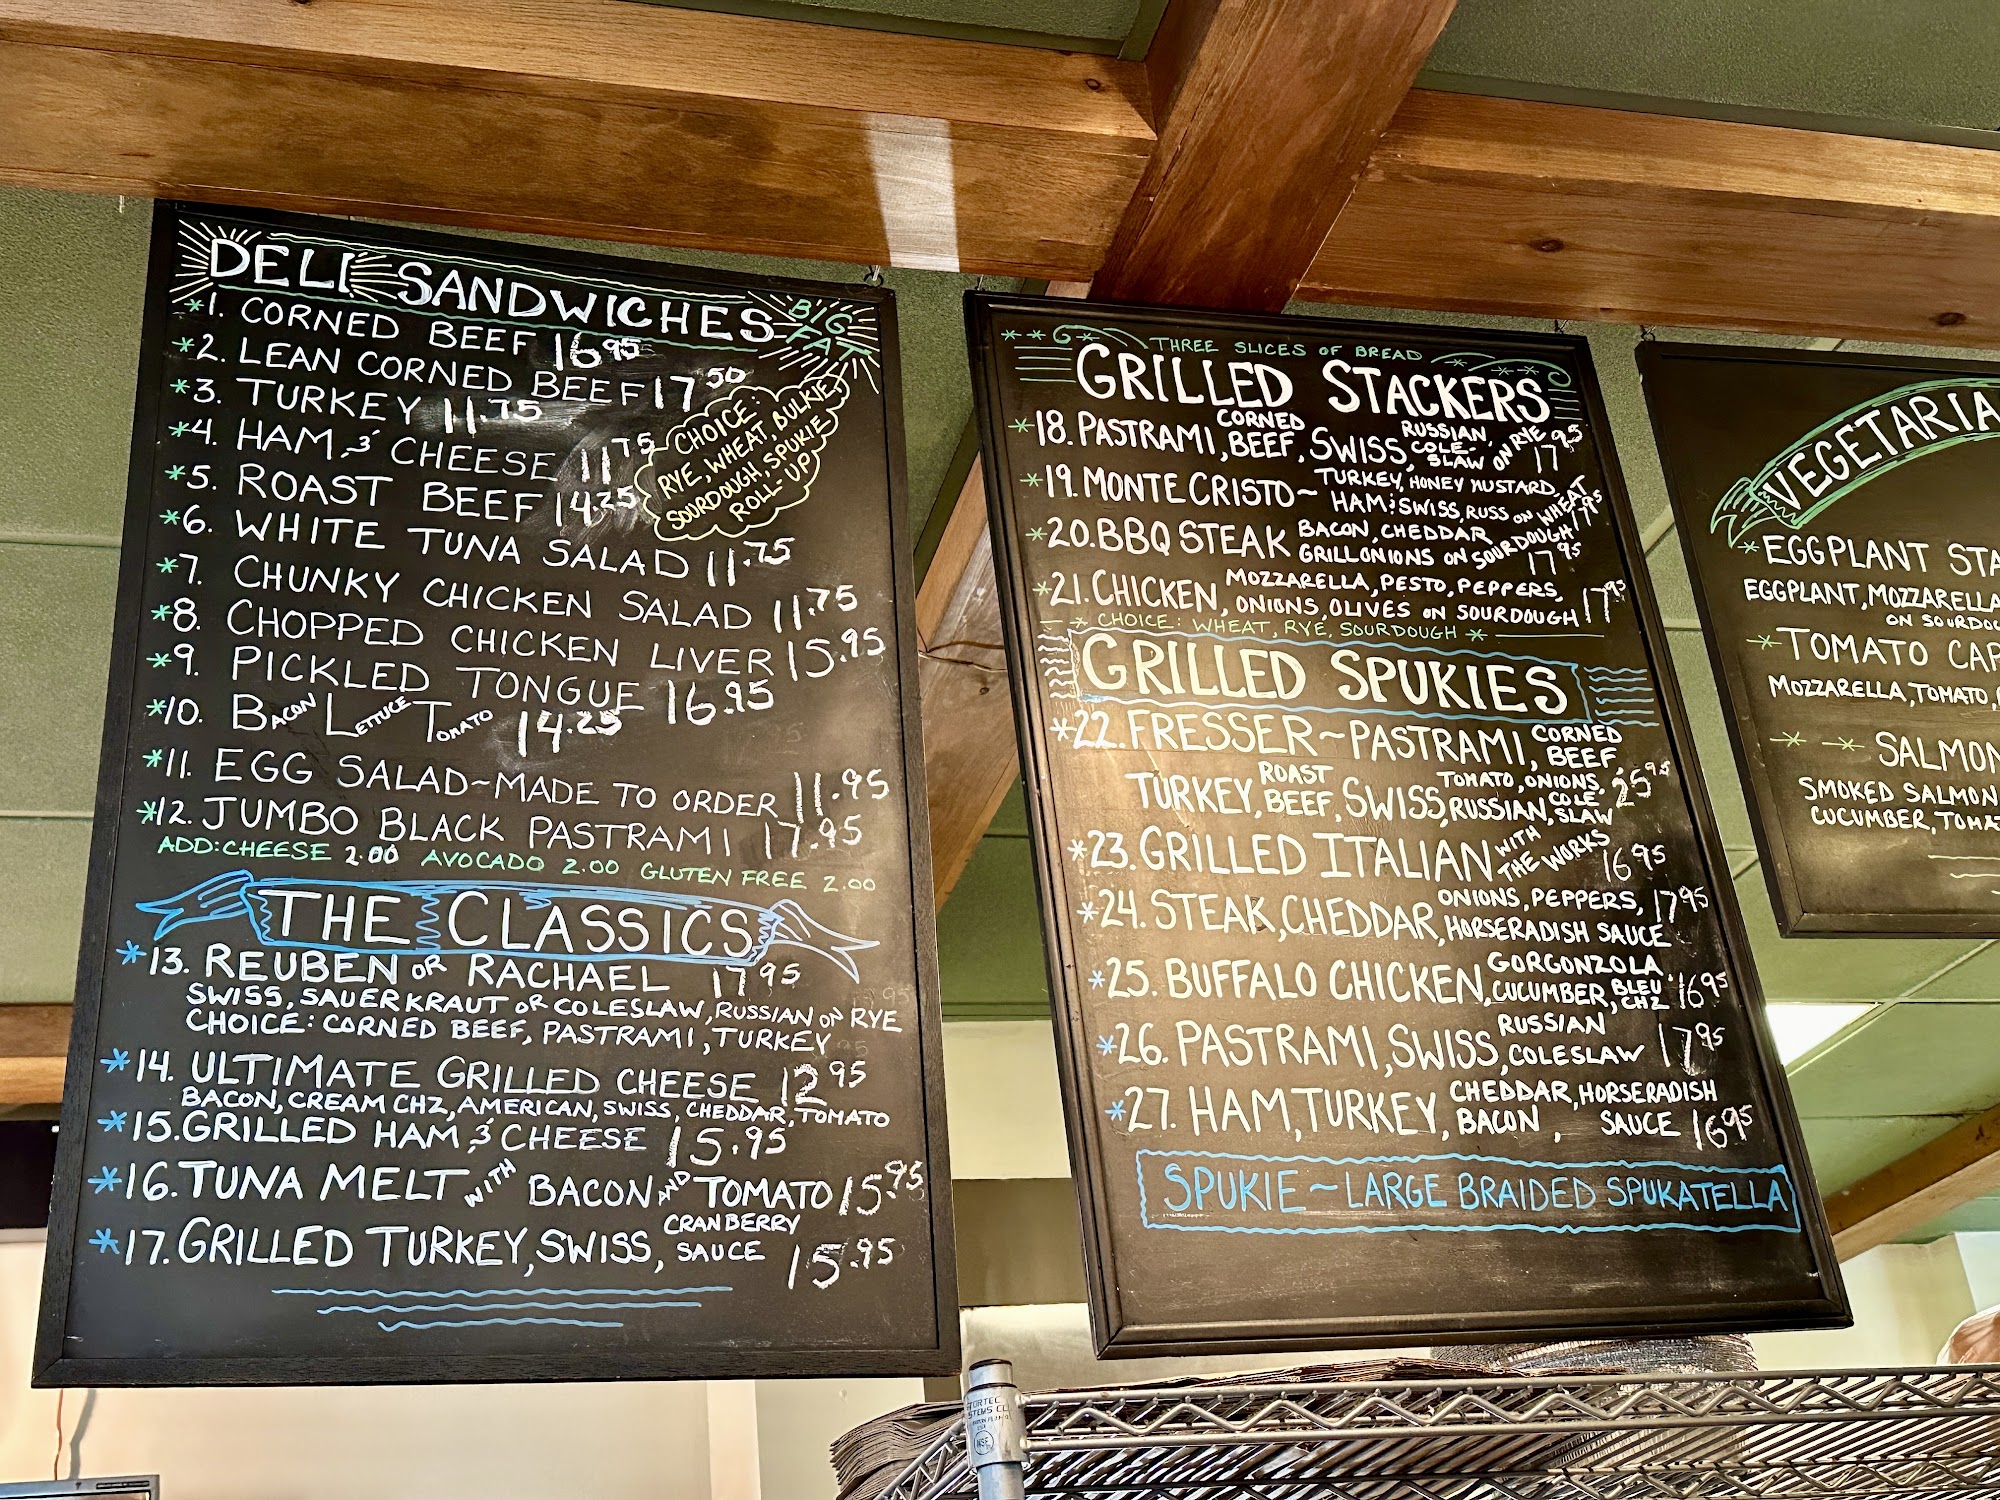 DELI SANDWICHES
BIG FAT
*1. CORNED BEEF 16.95
*2. LEAN CORNED BEEF 17.50
*3. TURKEY 11.75
*4. HAM & CHEESE 11.75
*5. ROAST BEEF 14.25
CHOICE:
RYE, WHEAT, BULKIE,
SOURDOUGH, SPUKIE
ROLL-UP
*6. WHITE TUNA SALAD 11.75
*7. CHUNKY CHICKEN SALAD 11.75
*8. CHOPPED CHICKEN LIVER 15.95
*9. PICKLED TONGUE 16.95
*10. BACON LETTUCE TOMATO 14.25
*11. EGG SALAD~MADE TO ORDER 11.95
*12. JUMBO BLACK PASTRAMI 17.95
ADD: CHEESE 2.00 AVOCADO 2.00 GLUTEN FREE 2.00
THE CLASSICS
*13. REUBEN OR RACHAEL 17.95
SWISS, SAUERKRAUT OR COLESLAW, RUSSIAN ON RYE
CHOICE: CORNED BEEF, PASTRAMI, TURKEY
*14. ULTIMATE GRILLED CHEESE 12.95
BACON, CREAM CHZ, AMERICAN, SWISS, CHEDDAR, TOMATO
*15. GRILLED HAM & CHEESE 15.95
*16. TUNA MELT WITH BACON AND TOMATO 15.95
*17. GRILLED TURKEY, SWISS, CRANBERRY SAUCE 15.95
THREE SLICES OF BREAD
GRILLED STACKERS
*18. PASTRAMI, CORNED BEEF, SWISS, RUSSIAN, COLE-SLAW ON RYE 17.95
*19. MONTE CRISTO~ TURKEY, HONEY MUSTARD,
HAM & SWISS, RUSS ON WHEAT 17.95
*20. BBQ STEAK BACON, CHEDDAR
GRILL ONIONS ON SOURDOUGH 17.95
*21. CHICKEN, MOZZARELLA, PESTO, PEPPERS,
ONIONS, OLIVES ON SOURDOUGH 17.95
* CHOICE: WHEAT, RYE, SOURDOUGH *
GRILLED SPUKIES
*22. FRESSER~PASTRAMI, CORNED BEEF,
TURKEY, ROAST BEEF, SWISS, TOMATO, ONIONS, RUSSIAN, COLE SLAW 25.95
*23. GRILLED ITALIAN WITH THE WORKS 16.95
*24. STEAK, CHEDDAR, ONIONS, PEPPERS, HORSERADISH SAUCE 17.95
*25. BUFFALO CHICKEN, GORGONZOLA, CUCUMBER, BLEU CHZ 16.95
*26. PASTRAMI, SWISS, RUSSIAN COLESLAW 17.95
*27. HAM, TURKEY, CHEDDAR, HORSERADISH
BACON, SAUCE 16.95
SPUKIE ~ LARGE BRAIDED SPUKATELLA
VEGETARIA
*EGGPLANT STA
EGGPLANT, MOZZARELLA
ON SOURDOU
*TOMATO CAP
MOZZARELLA, TOMATO,
* * SALMON
SMOKED SALMON
CUCUMBER, TOMAT
NSF